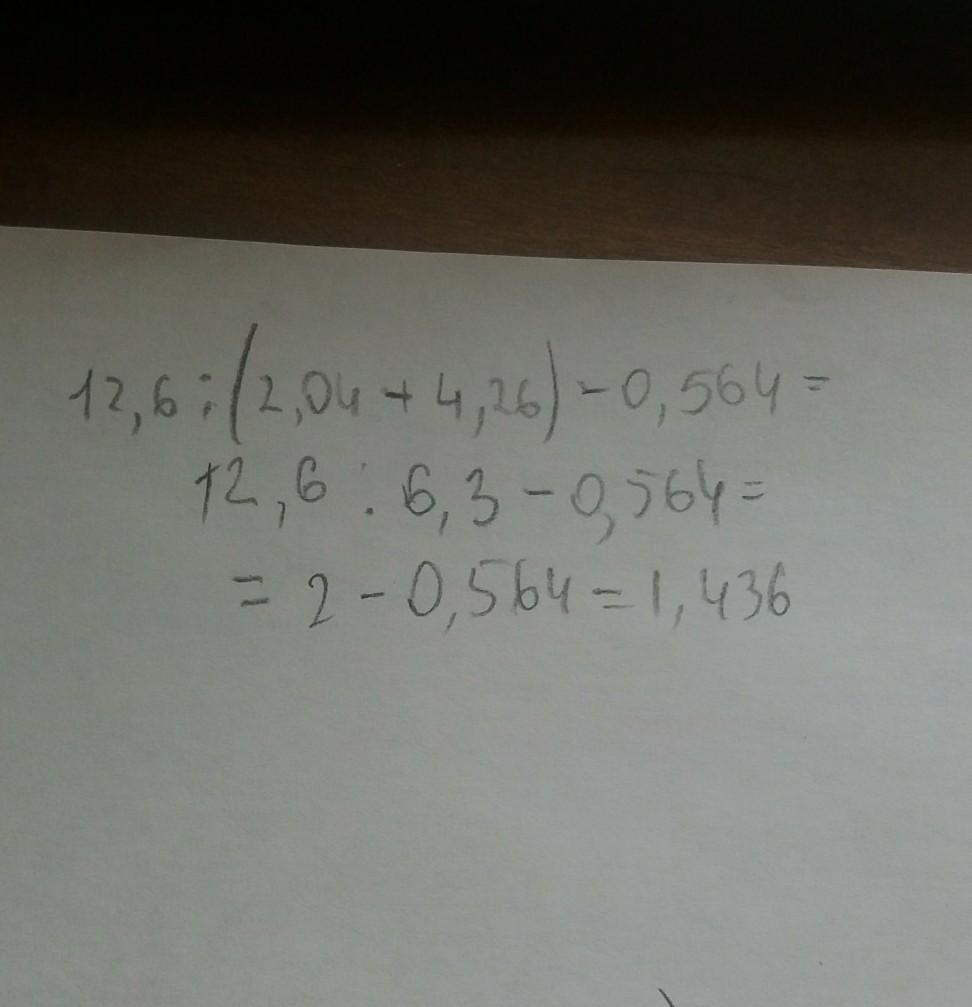 12,6:(2,04+4,26)-0,564=
12,6:6,3-0,564=
=2-0,564=1,436